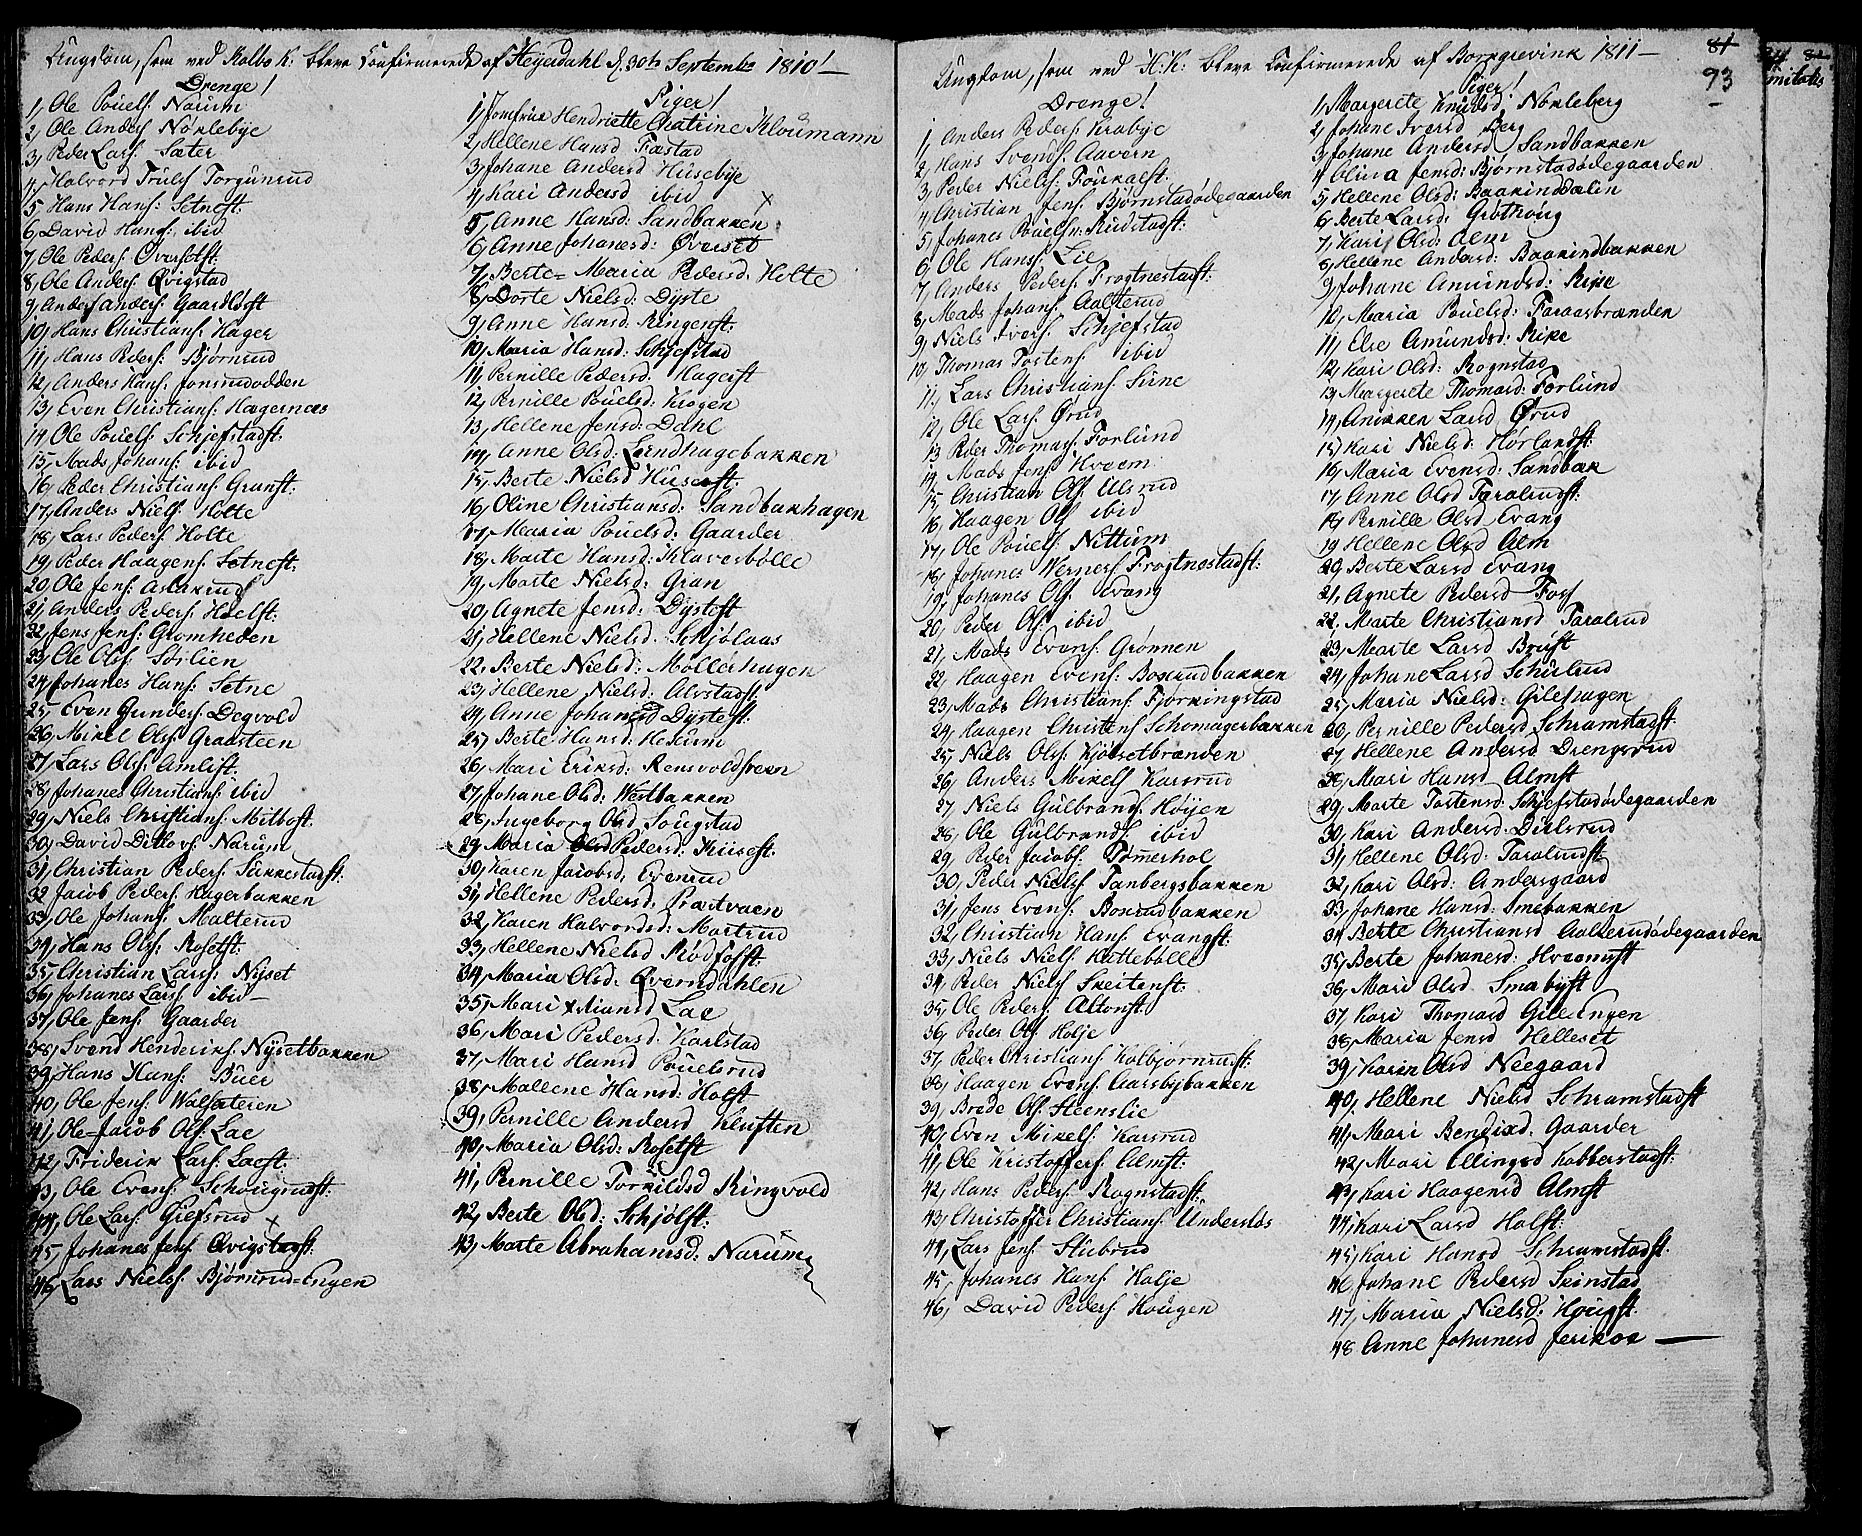 Ungdom, som ved Kolbo K: bleve Confirmerede af Heyerdahl d. 30te Septembr 1810!
Drenge!
1, Ole Pouels: Narum
2, Ole Anders Nørlebye
3, Peder Lars: Sæter
4, Halvord Truls Torgunrud
5 Hans Hans: Setneft:
6 David Hans: ibid
7, Ole Peders:
8, Ole Anders: Qvigstad
9, Anders Anders: Gaardløsft
10, Hans Christians: Hager
11, Hans Peders: Bjørnrud
12, Anders Hans: Jonsrudodden
13, Even Christians: Hægernæs
14 Ole Pouels: Schjefstadft:
15, Mads Johans: ibid
16, Peder Christians: Granft:
17, Anders Niels: Holte
18, Lars Peders: Holte
19, Peder Haagens: Setneft:
20, Ole Jens:
21, Anders Peders: Hoelft:
22, Jens Jens: Gromheden
23, Ole Ols:
24 Johanes Hans: Setne
25 Even Gunders: Degvold
26 Mikel Ols: Graasteen
27 Lars Ols: Amlift:
28, Johanes Christians: ibid
29, Niels Christians:
30, David Ditlovs: Narum
31, Christian Peders: Sukkestadft:
32 Jacob Peders: Hagerbakken
33, Ole Johans: Malterud
34, Hans Ols: Rosetft:
35, Christian Lars: Nyset
36, Johanes Lars: ibid
37, Ole Jens: Gaarder
38, Svend Henderiks: Nysetbakken
39, Hans Hans: Buer
40, Ole Jens: Walsæteren
41, Ole=Jacob Ols: Lae
42, Friderik Lars: Laeft:
43, Ole Evens: Schougrudft:
44, Ole Lars: Giefsrud
45, Johanes Jens: Qvigstadft:
46, Lars Niels: Bjørnrud=Engen
Piger!
1, Jomfrue Henriette Chatrine Kloumann
2, Hellene Hansd Fæstad
3, Johane Andersd Husebye
4, Kari Andersd ibid
5, Anne Hansd: Sandbakken
6, Anne Johanesd: Øverset
7, Berte=Maria Pedersd: Holte
8, Dorte Nielsd: Dyste
9, Anne Hansd: Ringenft:
10, Maria Hansd: Schjefstad
11, Pernille Pedersd: Hagerft
12, Pernille Pouelsd: Krogen
13, Hellene Jensd: Dahl
14, Anne Olsd: Lundhagebakken
15, Berte Nielsd Huserft:
16, Oline Christiansd: Sandbakhagen
17, Maria Pouelsd: Gaarder
18, Marte Hansd: Klaverbølle
19, Marte Nielsd: Gran
20, Agnete Jensd: Dysteft
21, Hellene Nielsd: Schjølaas
22, Berte Nielsd: Møllerhagen
23, Hellene Nielsd: Alvstadft
24, Anne Johanesd Dysteft:
25, Berte Hansd: Hexum
26, Mari Eriksd: Rensvoldsveen
27, Johane Olsd: Westbakken
28, Ingeborg Olsd Sougstad
29, Maria Pedersd: Huseft:
30, Karen Jacobsd, Evenrud
31, Hellene Pedersd: Præstvæen
32, Karen Halvordsd: Mortrud
33, Hellene Nielsd Rødsosft:
34, Maria Olsd: Qverndahlen
35, Mari xtiansd Lae
36, Mari Pedersd: Karlstad
37, Mari Hansd Pouelsrud
38, Mallene Hansd: Holft
39, Pernille Andersd Kluften
40, Maria Olsd: Rosetft
41, Pernille Torkildsd Ringvold
42, Berte Olsd: Schjølft:
43, Marte Abrahamsd: Narum
Ungdom, som ved H:K: bleve Confirmerede af Borrgrevink 1811
81
93
Drenge!
1, Anders Peders: Krabye
2, Hans Svends: Aavern
3, Peder Niels: Foukalft:
4, Christian Jens: Bjørnstadødegaarden
5, Johanes Pouelsn: Rudstadft:
6, Ole Hans: Lie
7, Anders Peders: Frogtnestadft:
8, Mads Johans: Aalterud
9, Niels Ivers: Schjefstad
10, Thomas Tostens ibid
11, Lars Christians: Sune
12, Ole Lars: Ørud
13 Peder Thomas: Forlund
14 Mads Jens: Hveem
15 Christian Ols: Ulsrud
16, Haagen Ols ibid
17, Ole Pouels: Nittum
18, Johanes Werners Frogtnestadft:
19, Johanes Ols: Evang
20, Peder Ols: ibid
21, Mads Evens: Grønnen
22, Haagen Evens: Boxrudbakken
23, Mads Christians: Fjorkingstad
24, Haagen Christens: Schomagerbakken
25, Niels Ols: Kjølsetbrænden
26, Anders Mikels Karsrud
27, Niels Gulbrands: Høyen
28, Ole Gulbrands: ibid
29, Peder Jacobs: Tømerhol
30, Peder Niels: Tanbergsbakken
31, Jens Evens: Boxrudbakken
32, Christian Hans: Evangft:
33, Niels Niels: Hattebølle
34, Peder Niels: Skeitenft:
35, Ole Peders: Altonft:
36, Peder Ols: Holje
37, Peder Christians: Kolbjørnrudft:
38, Haagen Evens: Aarsbybakken
39, Brede Ols: Steenslie
40, Even Mikels: Karsrud
41, Ole Kristoffers: Almft:
42, Hans Peders: Rognstadft:
43, Christoffer Christians: Underslos
44, Lars Jens: Stubrud
45, Johanes Hans: Holje
46, David Peders: Hougen
Piger!
1, Margrete Knudsd Nørleberg
2, Johane Iversd Berg
3, Johane Andersd Sandbakken
4 Olina Jensd: Bjørnstadødegaarden
5, Hellene Olsd: Baakinddalen
6, Berte Larsd: Grøthoug
7, Kari Olsd: Alm
8, Hellene Andersd: Baakindbakken
9, Johane Amundsd: Rise
10, Maria Pouelsd: Faraasbrænden
11, Else Amundsd: Rike
12, Kari Olsd: Rognstad
13, Margrete Thomasd: Forlund
14, Aniken Larsd Ørud
15, Kari Nielsd: Horlandft:
16, Maria Evensd: Sandbak
17, Anne Olsd Taralrudft:
18, Pernille Olsd Evang
19 Hellene Olsd Alm
20 Berte Larsd Evang
21, Agnete Pedersd Foss
22, Marte Christiansd Taralrud
23, Marte Larsd Bruft
24, Johane Larsd Schiulrud
25, Maria Nielsd: Gilehagen
26, Pernille Pedersd Schramstadft:
27, Hellene Andersd Drengsrud
28, Mari Hansd Almft
29, Marte Tostensd: Schjefstadødegaarden
30, Kari Andersd: Dulsrud
31, Hellene Olsd: Taralrudft
32, Kari Olsd: Andersgaard
33, Johane Hansd: Smebakken
34 Berte Christiansd Aalterudødegaarden
35, Berte Johanesd: Hveemft
36, Mari Olsd Smebyft
37, Kari Thomasd Gile Engen
38, Maria Jensd Helleset
39, Karen Olsd Neegaard
40, Hellene Nielsd Schramstadft
41, Mari Bendixd. Gaarder
42, Mari Ellingsd Kobberstadft:
43, Kari Haagensd Almft
44, Kari Larsd Holft:
45, Kari Hansd Schramstadft:
46 Johane Pedersd Seinstad
47, Maria Nielsd: Hougft:
48 Anne Johanesd Jerikoe